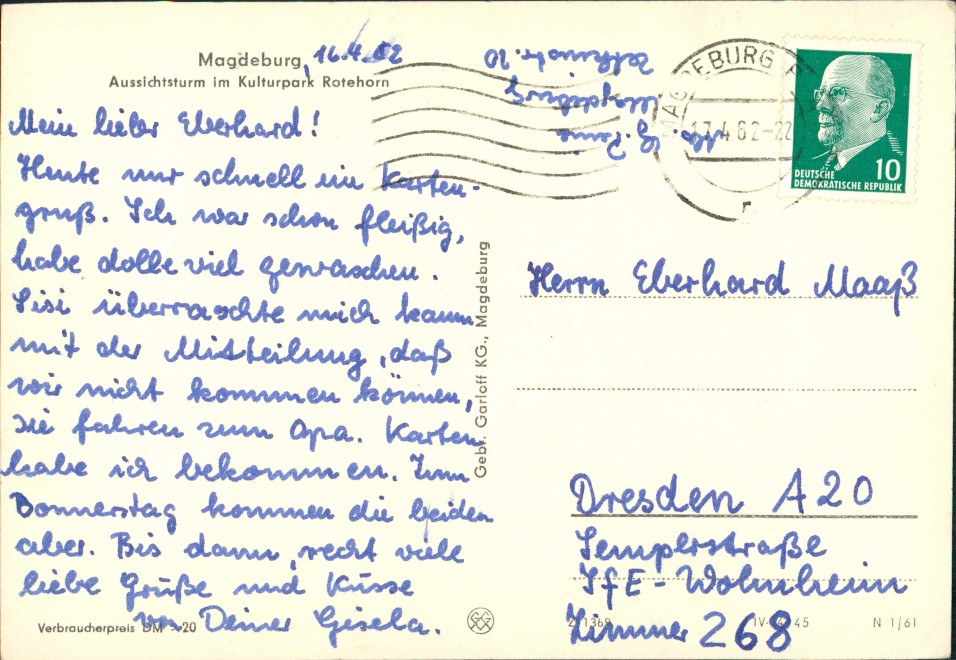 Magdeburg, 16.4.62
Aussichtsturm im Kulturpark Rotehorn
Mein lieber Eberhard!
Heute nur schnell ein Karten-
gruß. Ich war schon fleißig,
habe dolle viel gewaschen.
Sisi überraschte mich kaum
mit der Mitteilung, daß
wir nicht kommen können,
sie fahren zum Opa. Karten
habe ich bekommen. Zum
Donnerstag kommen die beiden
aber. Bis dann, recht viele
liebe Grüße und Küsse
von Deiner Gisela.
Verbraucherpreis DM -.20
Gebr. Garloff KG., Magdeburg
Abs. G.
Magdeburg
MAGDEBURG
17.4.62-22
DEUTSCHE
DEMOKRATISCHE REPUBLIK
10
Herrn Eberhard Maaß
Dresden A20
Semperstraße
IfE-Wohnheim
Zimmer 268
45
N 1/61